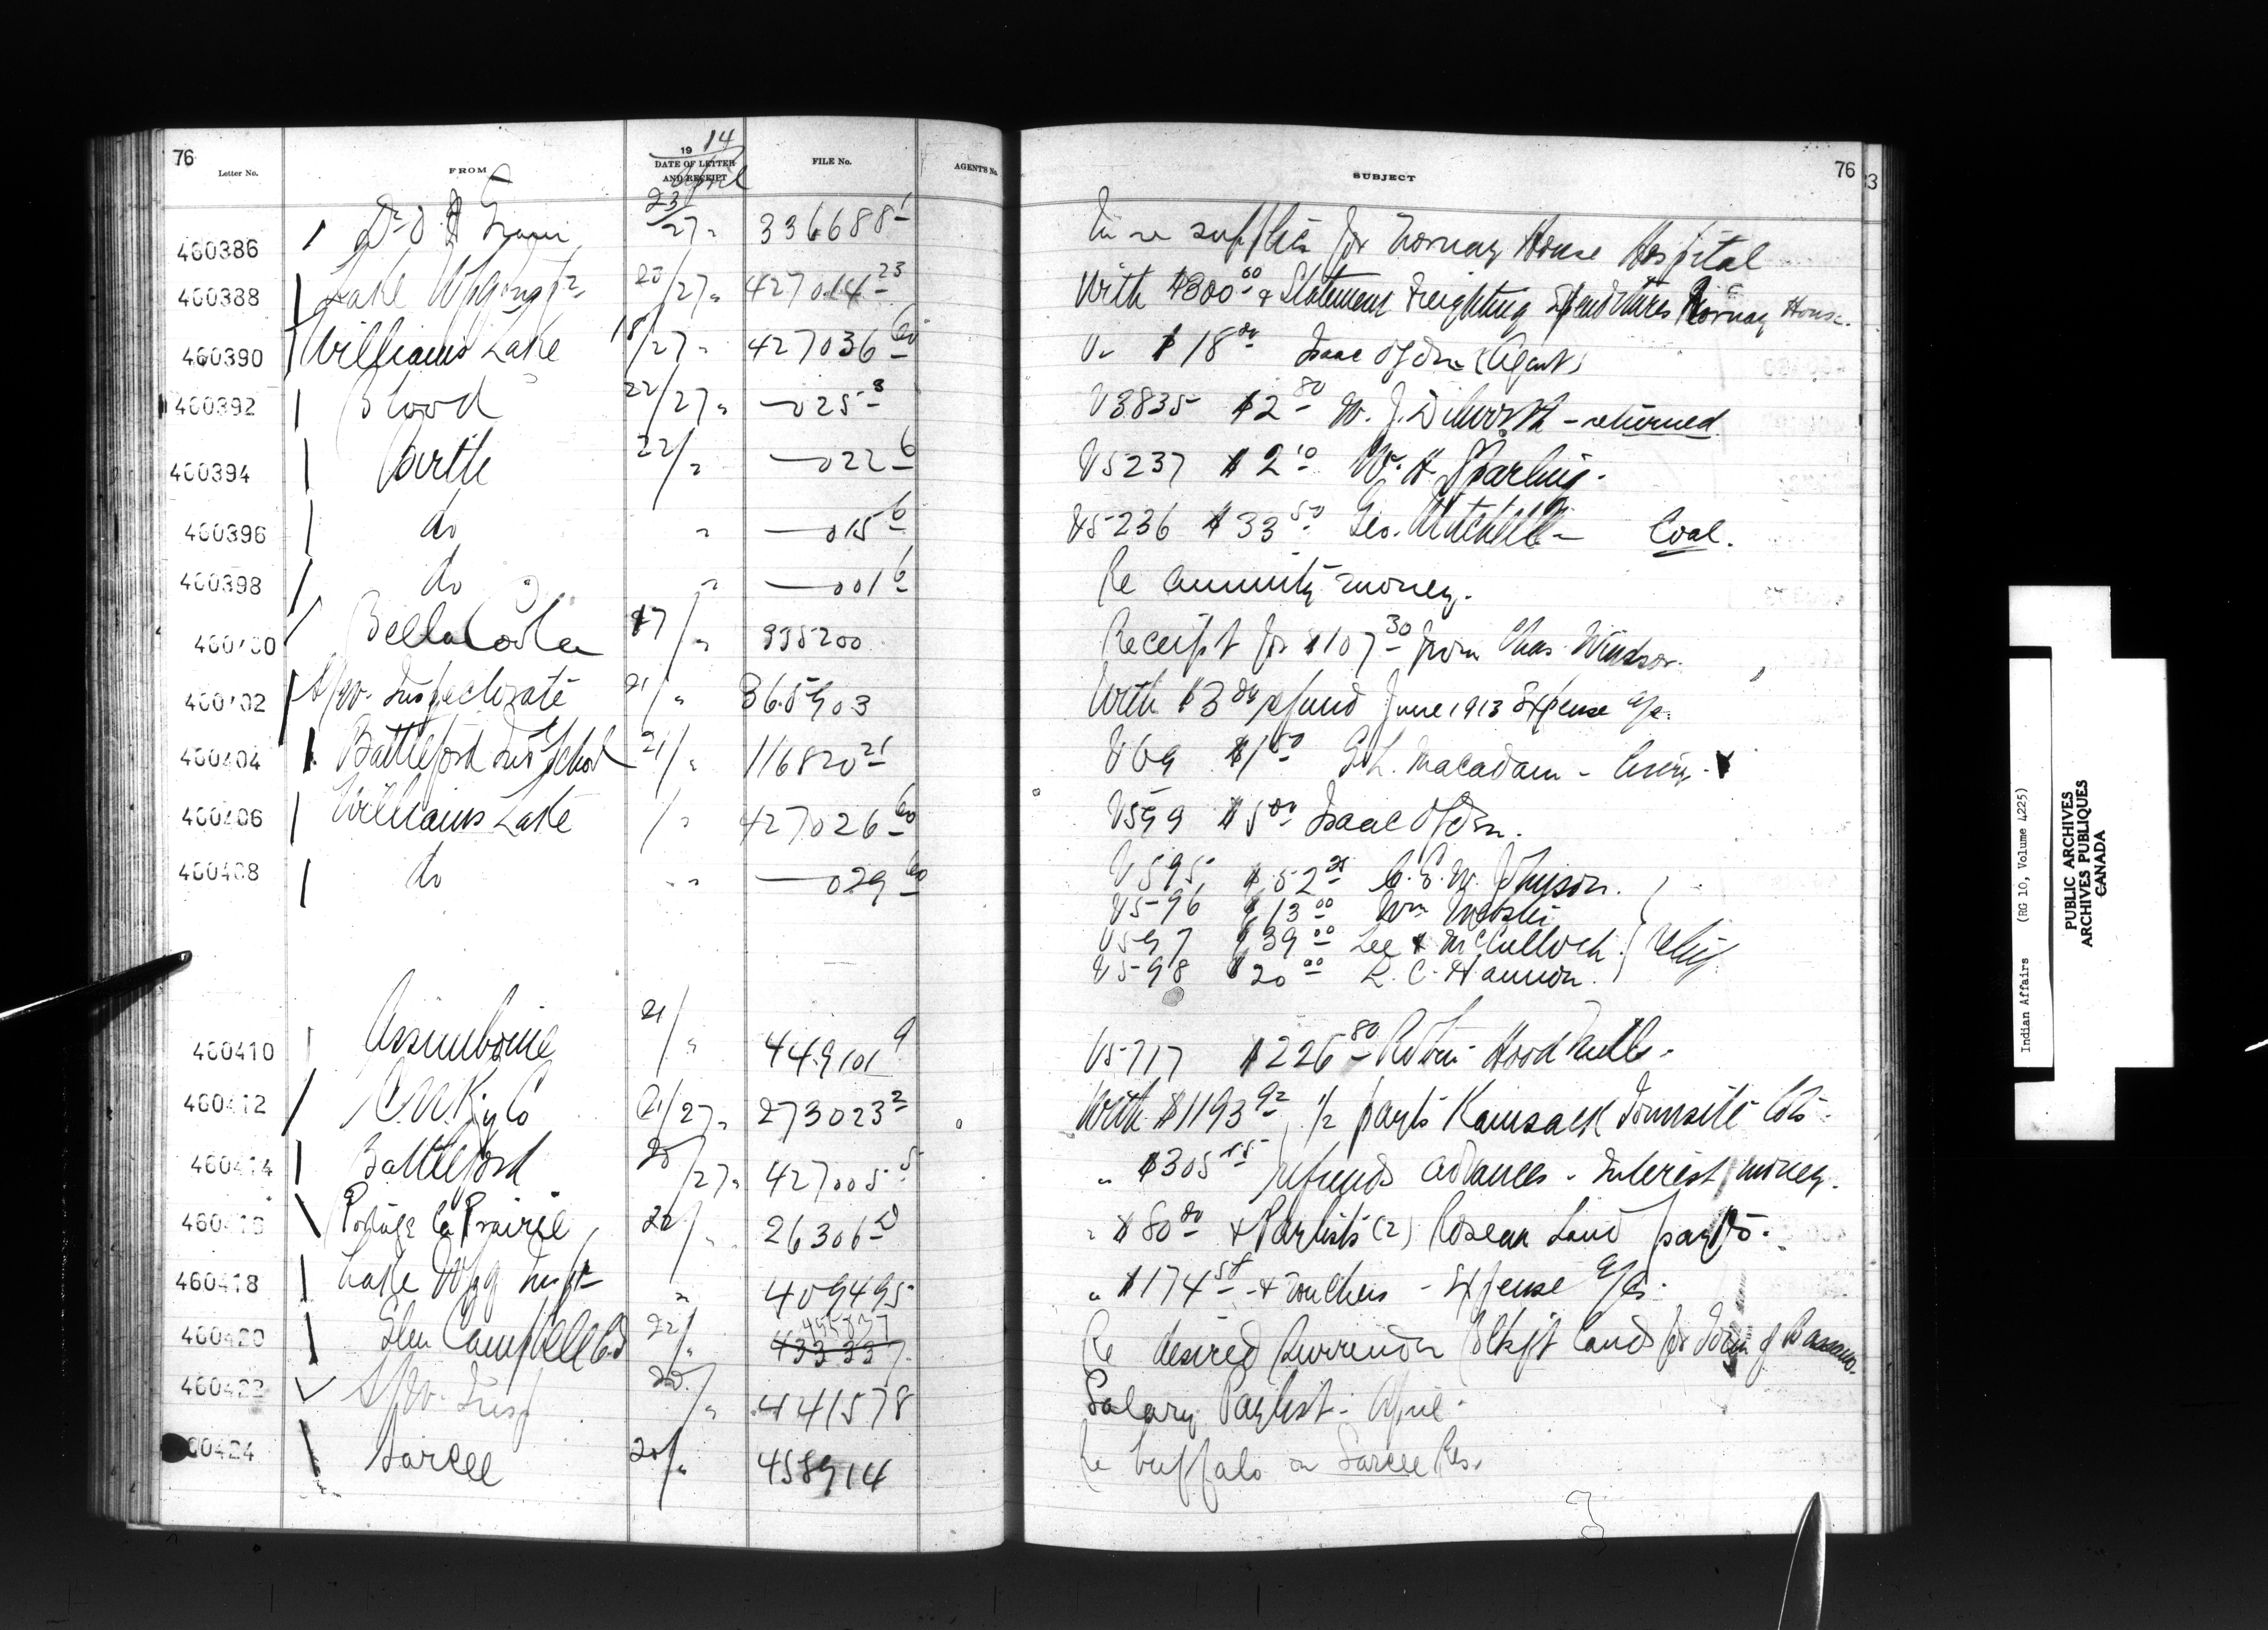 76
Letter No.
FROM
19 14
DATE OF LETTER
AND RECEIPT
April
FILE No.
AGENTS No.
SUBJECT
76
460386 Dr. O. I. 23/27 " 336688 1 In re supplies for Norway House Hospital
460388 Lake Wpg Insp 20/27 " 427014 23 With $300 60 & Statement Freighting Expenditures Norway House.
460390 Williams Lake 18/27 " 427036 60 V. $18 00 Isaac Ogden (Agent)
460392 Blood 22/27 " — 025 3 V3835 $2 80 W. J. Dilworth - returned.
460394 Birtle 22/ " — 022 6 V5237 $2 10 W. H. Sparling.
460396 do " — 015 6 V5236 $33 50 Geo. Mitchell - Coal.
460398 do " — 001 6 Re annuity money.
460400 Bella Coola 17/ " 995200 Receipt for $107 30 from Chas. Windsor.
460402 S/W. Inspectorate 21/ " 365903 With $3 00 refund June 1913 Expense a/c.
460404 Battleford Ind School 21/ " 116820 21 V69 $1 50 G. L. Macadam -
460406 Williams Lake / " 427026 60 V599 $5 00 Isaac Ogden.
460408 do " " — 029 60 V595 $52 25 C. E. W. Johnson.
V596 $13 00 Wm
V597 $39 00 Lee & McCulloch. Relief
V598 $20 00 R. C. Hannon.
460410 Assiniboine 21/ " 449101 9 V5717 $226 80 Robin Hood Mills.
460412 C.N. Ry Co 21/27 " 273023 2 With $1193 92, 1/2 payts Kamsack Townsite lots
460414 Battleford 20/27 " 427005 5 " $305 15 refunds advances - Interest money.
460416 Portage la Prairie 20/ " 26306 " $80 00 & Paylists (2) Roseau Land payts.
460418 Lake Wpg Insp " 409495 " $174 58 & vouchers - Expense a/c.
460420 Glen Campbell 22/ " 433337 455837 Re desired surrender Blkft lands for Town of Bassano.
460422 S/W. Insp 20/ " 441578 Salary Paylist - April.
460424 Sarcee 20/ " 458914 Re buffalo on Sarcee Res.
Indian Affairs (RG 10, Volume 4225)
PUBLIC ARCHIVES
ARCHIVES PUBLIQUES
CANADA